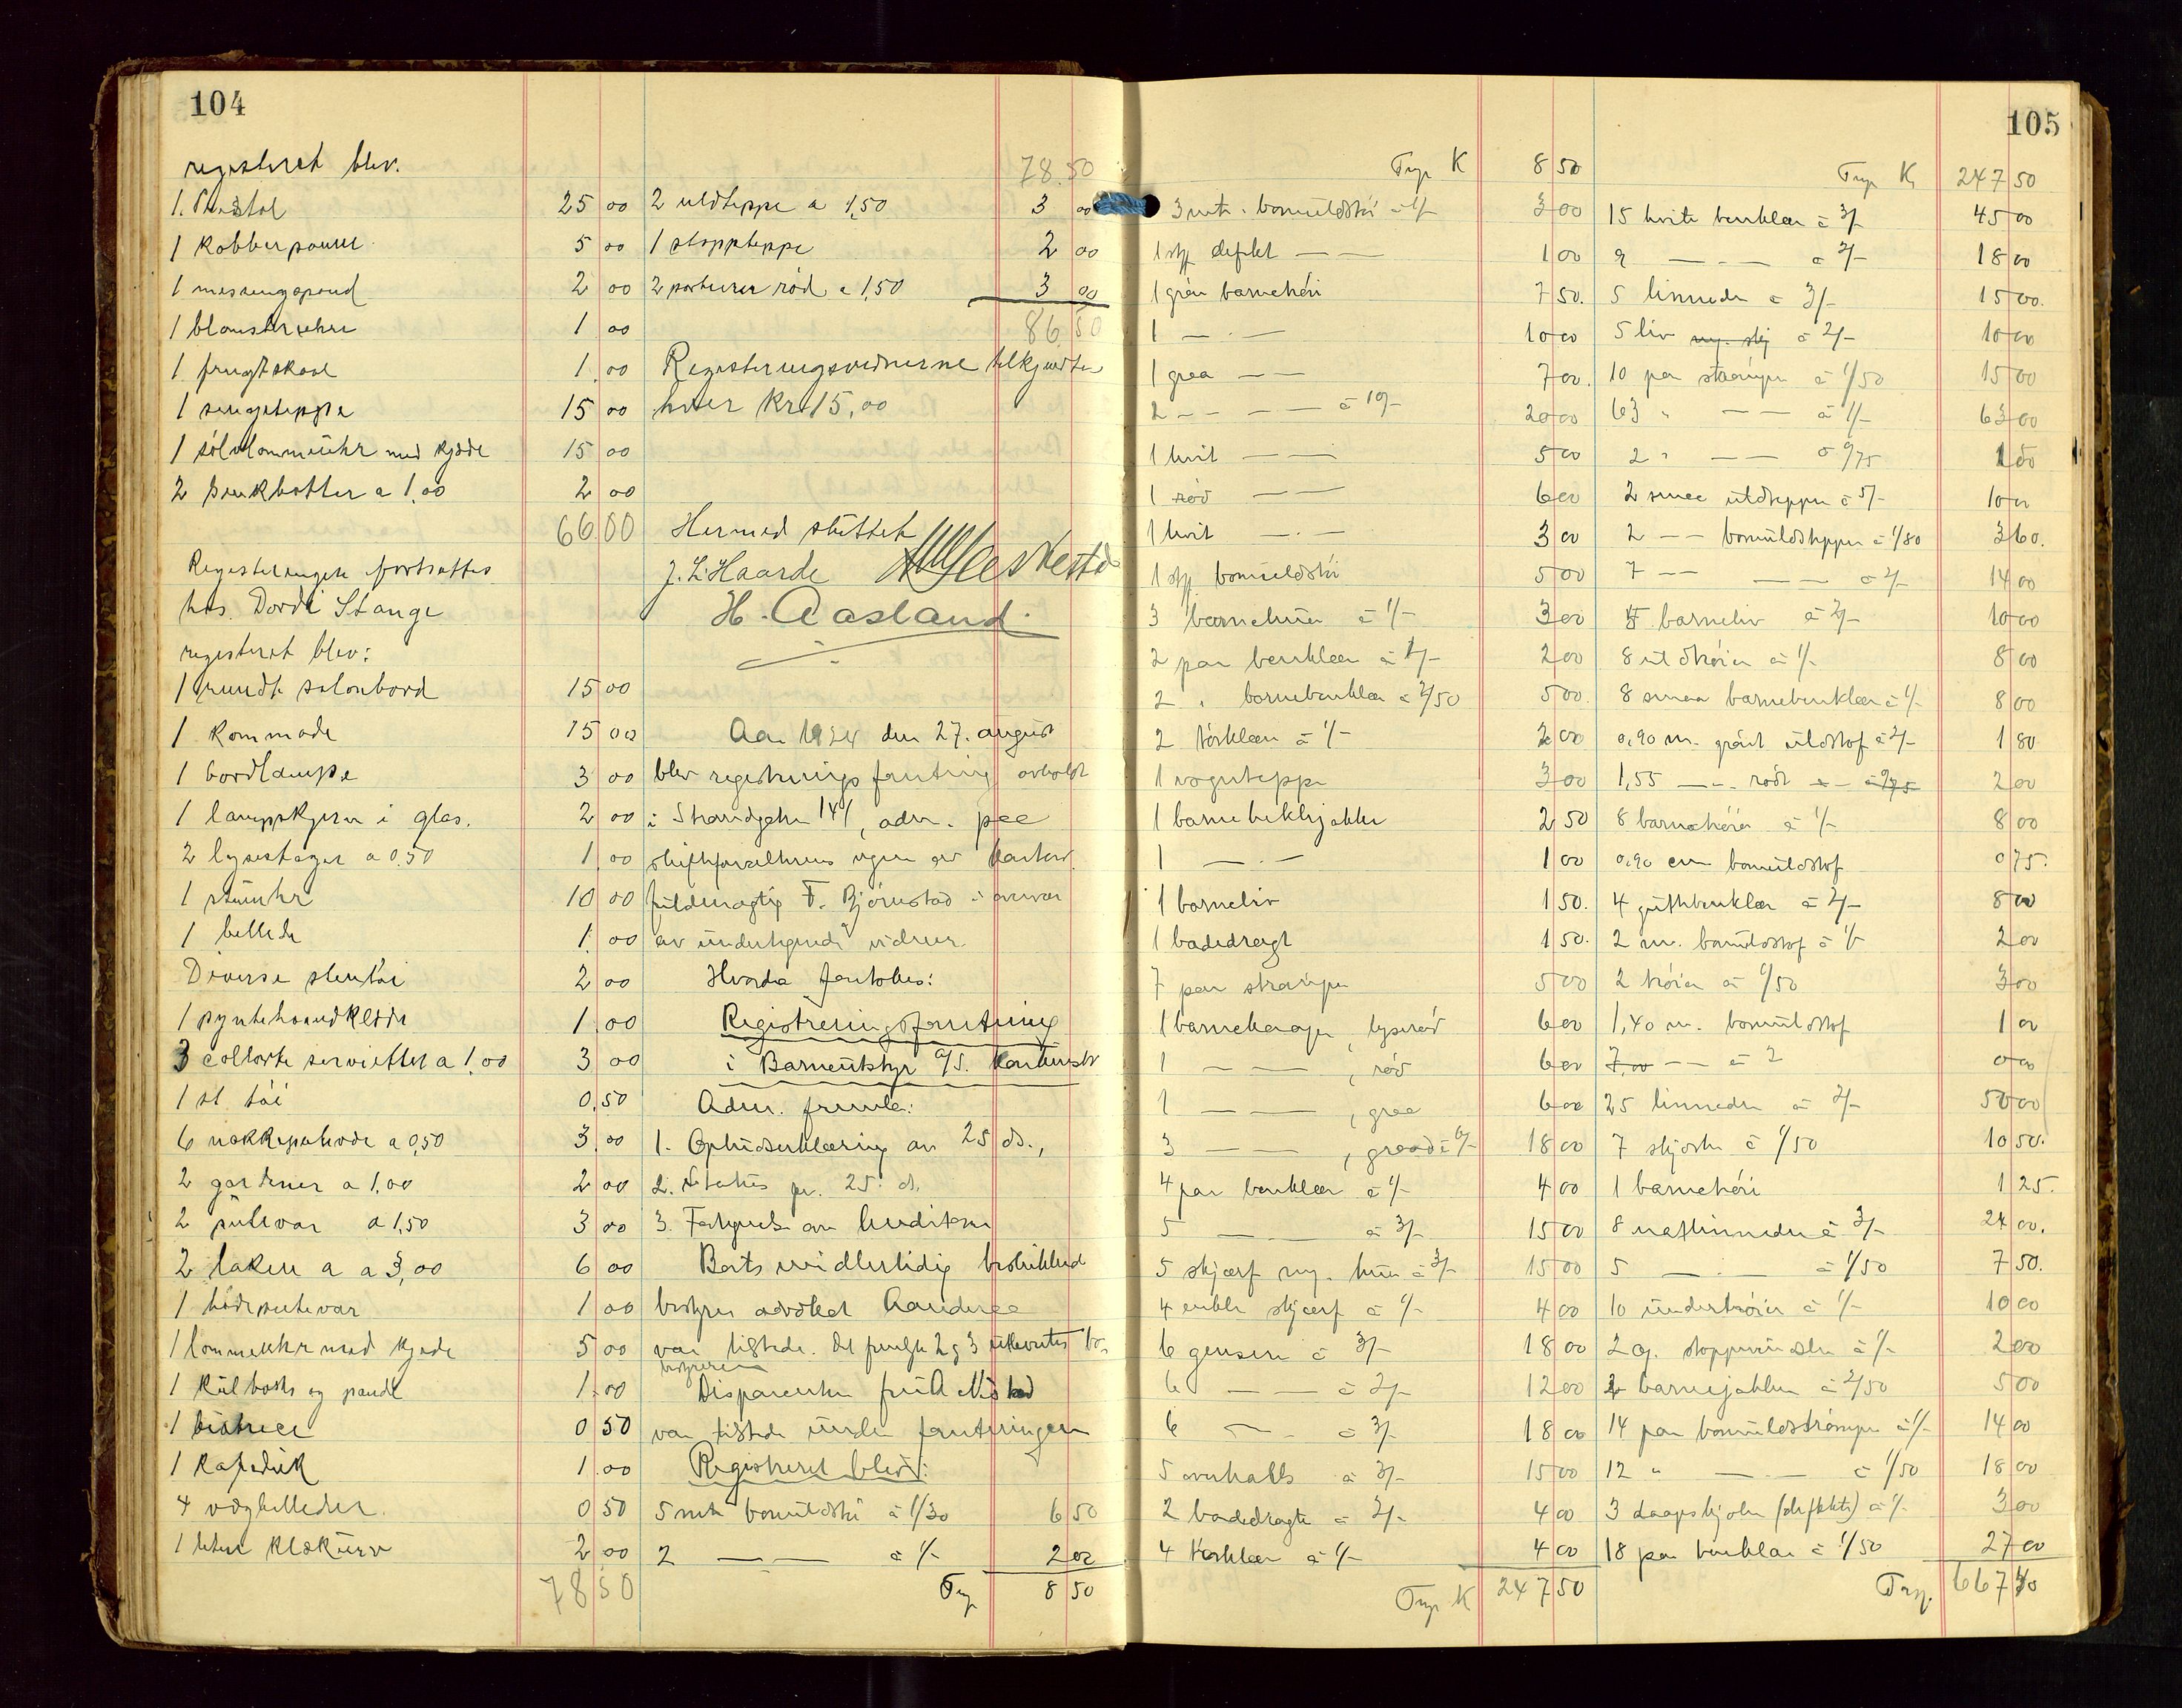 104
registeret blev.
1 kobberpande 5 00
1 messingspand 2 00
1 1 00
1 frugtskaal 1 00
1 sengeteppe 15 00
1 sölvlommeuhr med kjæde 15 00
2 a 1,00 2 00
66 00
Registeringen fortsattes
hos. Dordi Stange
registeret blev:
1 rundt salonbord 15 00
1 kommode 15 00
1 bordlampe 3 00
1 i glas. 2 00
2 lysestager a 0.50 1 00
1 stueuhr 10 00
1 billede 1 00
Diverse stentöi 2 00
1 pyntehaandklæde 1 00
3 servietter a 1,00 3 00
1 st. töi 0,50
6 a 0,50 3 00
2 gardener a 1,00 2 00
2 putevar a 1,50 3 00
2 laken a a 3,00 6 00
1 1 00
1 lommeuhr med kjæde 5 00
1 kulboks og 1 00
1 0 50
1 1 00
4 vægbilleder 0 50
1 liten klækurv 2 00
78 50
78.50
2 uldteppe a 1,50 3 00
1 stoppteppe 2 00
2 portierer röd a 1,50 3 00
86 50
Registeringsvidnerne tilkjendtes
hver kr. 15,00
Hermed sluttet
J. L. Haarde
H. Aasland
Aar 1924 den 27. august
blev registrerings forretning avholdt
i Strandgaten 141, adm. paa
skifteforvalterens vegne av kontor
fuldmægtig T. Bjørnstad i overvær
av undertegnede vidner.
Hvorda foretokes:
Registreringsforretning
i Barneutstyr A/S. konkursbo
Adm. fremla:
1. Ophørserklæring av 25 ds.,
2. Status pr. 25. ds.
3. Fortegnelse over kreditorer
Boets midlertidig beskikked
bestyrer advokat Aanderaa
var tilstede. Det fremlagte 2 og 3 utleveretes bo-
bestyreren
Disponenten
var tilstede under forretningen
Registreret blev:
5 mtr bomuldstöi á 1/30 6 50
2 — — á 1/- 2 00
Trp 8 50
105
Trp K 8 50
3 mtr. bomuldstöi á 1/- 3 00
1 stk defekt — — 1 00
1 grön barnetröie 7 50
1 — - — 10 00
1 graa — — 7 00
2 - - — — á 10/- 20 00
1 hvit — — 5 00
1 röd — — 6 00
1 hvit — . — 3 00
1 stk bomuldstöi 5 00
3 barneluer á 1/- 3 00
2 par benklær á 1/- 2 00
2 " barnebenklær á 2/50 5 00
2 á 1/- 2 00
1 vognteppe 3 00
1 2 50
1 — . — 1 00
1 barneliv 1 50
1 badedragt 1 50
7 par strømper 5 00
1 barnekaape, lyserød 6 00
1 — —, rød 6 00
1 — —, graa 6 00
3 — —, á 6/- 18 00
4 par benklær á 1/- 4 00
5 — . — á 3/- 15 00
5 skjærf og lue á 3/- 15 00
4 enkle skjærf á 1/- 4 00
6 gensere á 3/- 18 00
6 — — á 2/- 12 00
6 — - á 3/- 18 00
5 overhalls á 3/- 15 00
2 badedragter á 2/- 4 00
4 á 1/- 4 00
Trp K 247 50
Trp K 247 50
15 hvite benklær á 3/- 45 00
9 — - — á 2/- 18 00
5 linneder á 3/- 15 00
5 liv á 2/- 10 00
10 par strømper á 1/50 15 00
63 " — — á 1/- 63 00
2 " — — á 0/75 1 50
2 smaa uldtepper á 5/- 10 00
2 — — bomuldstepper á 1/80 3 60
7 — — — á 2/- 14 00
5 barneliv á 2/- 10 00
8 uldtröier á 1/- 8 00
8 smaa barnebenklær á 1/- 8 00
0,90 m. grönt uldstof á 2/- 1 80
1,55 — - rödt — - 2 00
8 barnetröier á 1/- 8 00
0,90 cm bomuldstof 0 75
4 guttebenklær á 2/- 8 00
2 m. bomuldstof á 1/- 2 00
2 tröier á 1/50 3 00
1,40 m. bomuldstof 1 00
25 linneder á 2/- 50 00
7 skjorter á 1/50 10 50
1 barnetröie 1 25
8 natlinneder á 3/- 24 00
5 — . — á 1/50 7 50
10 undertröier á 1/- 10 00
2 á 1/- 2 00
2 barnejakker á 2/50 5 00
14 par bomuldstrømper á 1/- 14 00
12 " — . — á 1/50 18 00
3 daapskjoler (defekte) á 1/- 3 00
18 par benklær á 1/50 27 00
Trp. 667 40